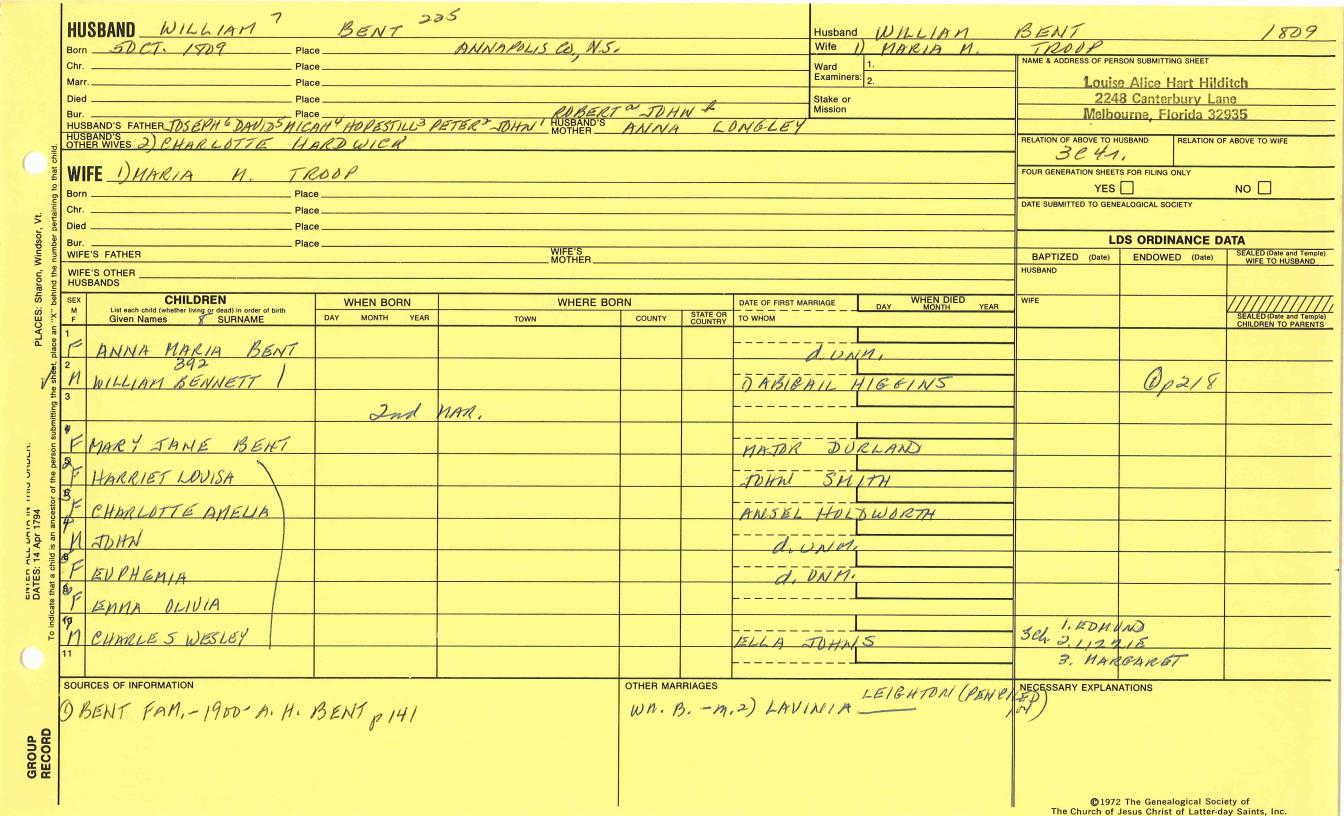 HUSBAND WILLIAM 7 BENT 225
Born 5 OCT. 1809 Place ANNAPOLIS CO, N.S.
Chr. Place
Marr. Place
Died Place
Bur. Place ROBERT JOHN
HUSBAND'S FATHER JOSEPH 6 DAVID 5 MICAH 4 HOPESTILL 3 PETER 2 JOHN 1 HUSBAND'S MOTHER ANNA LONGLEY
HUSBAND'S OTHER WIVES 2) CHARLOTTE HARDWICK
WIFE 1) MARIA M. TROOP
Born Place
Chr. Place
Died Place
Bur. Place
WIFE'S FATHER WIFE'S MOTHER
WIFE'S OTHER HUSBANDS
Husband WILLIAM BENT 1809
Wife 1) MARIA M. TROOP
Ward Examiners: 1.
2.
Stake or Mission
NAME & ADDRESS OF PERSON SUBMITTING SHEET
Louise Alice Hart Hilditch
2248 Canterbury Lane
Melbourne, Florida 32935
RELATION OF ABOVE TO HUSBAND RELATION OF ABOVE TO WIFE
3C4r.
FOUR GENERATION SHEETS FOR FILING ONLY
YES NO
DATE SUBMITTED TO GENEALOGICAL SOCIETY
LDS ORDINANCE DATA
BAPTIZED (Date) ENDOWED (Date) SEALED (Date and Temple) WIFE TO HUSBAND
HUSBAND
WIFE
SEALED (Date and Temple) CHILDREN TO PARENTS
SEX M F CHILDREN WHEN BORN WHERE BORN DATE OF FIRST MARRIAGE WHEN DIED
List each child (whether living or dead) in order of birth
Given Names 8 SURNAME DAY MONTH YEAR TOWN COUNTY STATE OR COUNTRY TO WHOM DAY MONTH YEAR
1 F ANNA MARIA BENT d. UNM.
392
2 M WILLIAM BENNETT 1) ABIGAIL HIGGINS ① p 218
3 2nd MAR.
F MARY JANE BENT MAJOR DURLAND
F HARRIET LOUISA JOHN SMITH
F CHARLOTTE AMELIA ANSEL HOLDWORTH
M JOHN d. UNM.
F EUPHEMIA d. UNM.
F EMMA OLIVIA
M CHARLES WESLEY ELLA JOHNS 3ch. 1. EDMUND
2. LIZZIE
11 3. MARGARET
SOURCES OF INFORMATION
① BENT FAM. - 1900 - A. H. BENT p 141
OTHER MARRIAGES
WM. B. - m. 2) LAVINIA LEIGHTON
NECESSARY EXPLANATIONS
©1972 The Genealogical Society of
The Church of Jesus Christ of Latter-day Saints, Inc.
PLACES: Sharon, Windsor, Vt.
DATES: 14 Apr 1794
To indicate that a child is an ancestor of the person submitting the sheet, place an "X" behind the number pertaining to that child.
GROUP RECORD